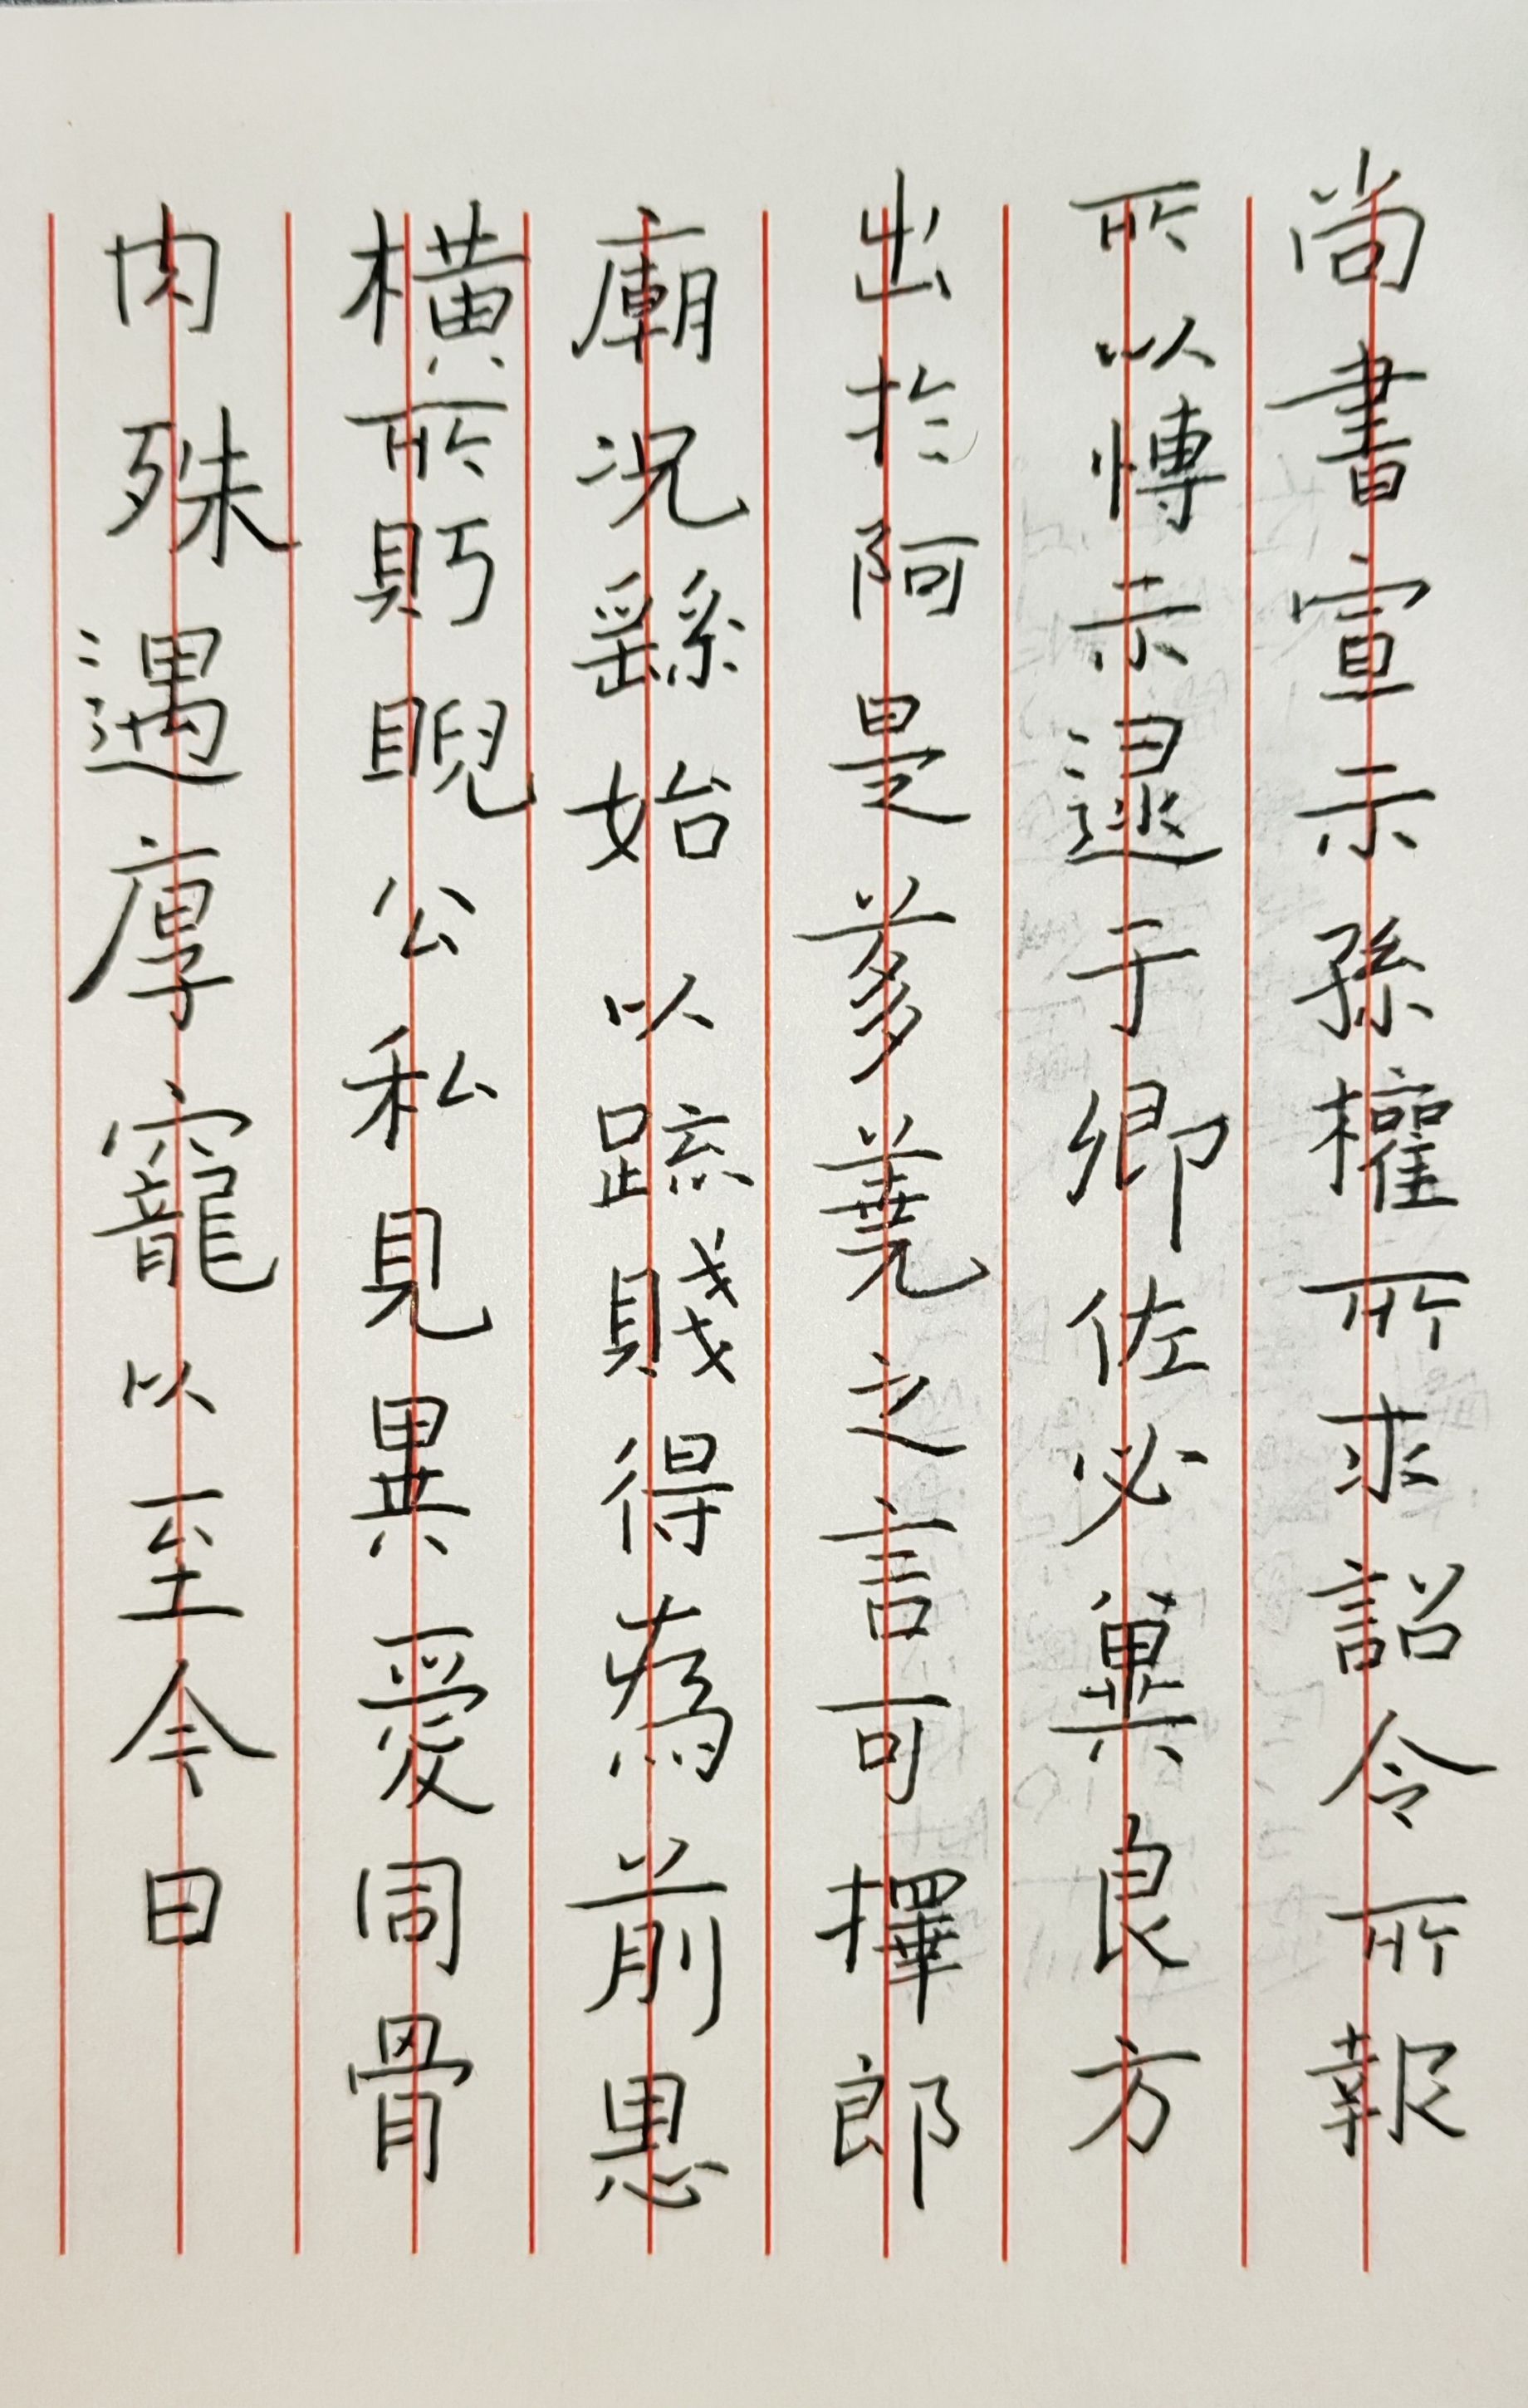 尚書宣示孫權所求詔令所報
所以博示逮于卿佐必冀良方
出於阿是芻蕘之言可擇郎
廟況繇始以疏賤得為前恩
橫所眄睨公私見異愛同骨
肉殊遇厚寵以至今日